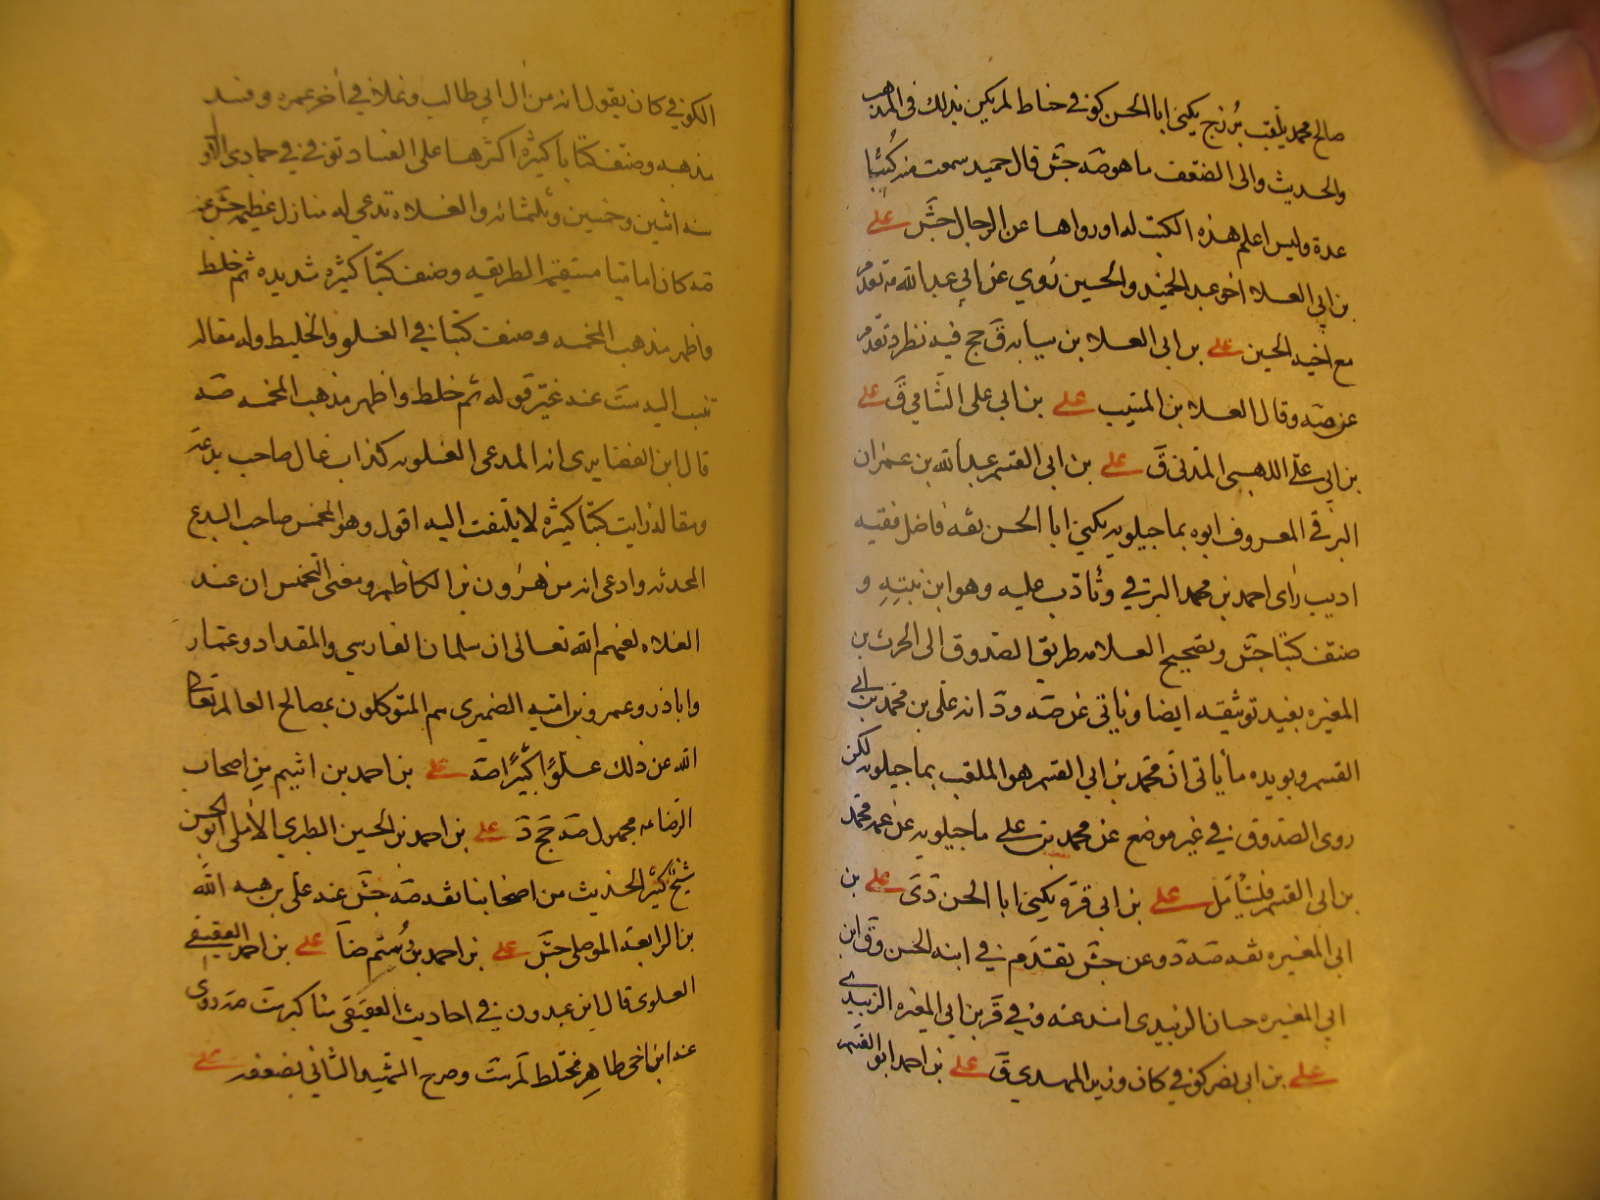 صالح محمد يلقب بُزُرج يكنى ابا الحسن كوفي حناط لم يكن بذلك في المذهب
والحديث والى الضعف ما هو صَه جَش قال حميد سمعت منه كُتبًا
عدة وليس اعلم هذه الكتب له او رواها عن الرجال جَش علي
بن ابي العلا اخو عبد الحميد والحسين روي عن ابي عبد الله مه تقدم
مع اخيه الحسين علي بن ابي العلا بن سيابه قَ جج فيه نظر د تقدم
عن صَه وقال العلا بن المسيب علي بن ابي علي الشامي قَ علي
بن ابي علي اللهبي المدني قَ علي بن ابي القسم عبد الله بن عمران
البرقي المعروف ابوه بماجيلويه يكنى ابا الحسن ثقه فاضل فقيه
اديب راى احمد بن محمد البرقي وتأدّب عليه وهو ابن بنته و
صنف كتبا جَش وتصحيح العلامه طريق الصدوق الى الحرث بن
المغيره يفيد توثيقه ايضا وياتي عن صَه ودَ انه علي بن محمد بن ابي
القسم ويويده ما ياتي انّ محمد بن ابي القسم هو الملقب بماجيلويه لكن
روى الصدوق في غير موضع عن محمد بن علي ماجيلويه عن عمه محمد
بن ابي القسم فليتأمّل علي بن ابي قرة يكنى ابا الحسن دَىَ علي بن
ابي المغيره ثقه صَه دَ وعن جَش تقدّم في ابنه الحسن وقَ ابن
ابي المغيره حسان الزبيدى اسند عنه وفي قَر بن ابي المغيره الزبيدي
علي بن ابي نصر كوفي كان وزير المهدي قَ علي بن احمد ابو القسم
الكوفي كان يقول انه من ال ابي طالب وغلا في اخر عمره وفسد
مذهبه وصنف كتبا كثيره اكثرها على الفساد توفي في جمادى الاولى
سنه اثنين وخمسين وثلثمائه والغلاه تدعي له منازل عظيمه جَش
صَه كان اماميا مستقيم الطريقه وصنف كتبا كثيره سديده ثم خلط
واظهر مذهب المخمسه وصنف كتبا في الغلو والتخليط وله مقاله
تنسب اليه ستَ عند غيّر قوله ثم خلط واظهر مذهب المخمسه صَه
قال ابن الغضايري انه المدعي العلويه كذاب غال صاحب بدعه
ومقاله رايت كتبا كثيره لا يلتفت اليه اقول وهو المخمس صاحب البدع
المحدثه وادعى انه من هرون بن الكاظم ومعنى التخمس ان عند
الغلاه لعنهم الله تعالى ان سلمان الفارسي والمقداد وعمار
وابا ذر وعمرو بن اميه الضميري هم الموكلون بمصالح العالم تعالى
الله عن ذلك علوًا كبيرًا صَه علي بن احمد بن اشيم مِن اصحاب
الرضا مجهول صَه جَج دَ علي بن احمد بن الحسين الطبري الاملى ابو الحسن
شيخ كثير الحديث من اصحابنا ثقه صَه جَش عند علي بن هبه الله
بن الرابعه الموصلى جَش علي بن احمد بن رُستم ضاَ علي بن احمد العقيقي
العلوى قال ابن عبدون في احاديث العقيقى مناكير ستَ صَه روى
عنه ابن اخى طاهر مختلط لم ستَ وصرح الشهيد الثاني بضعفه علي